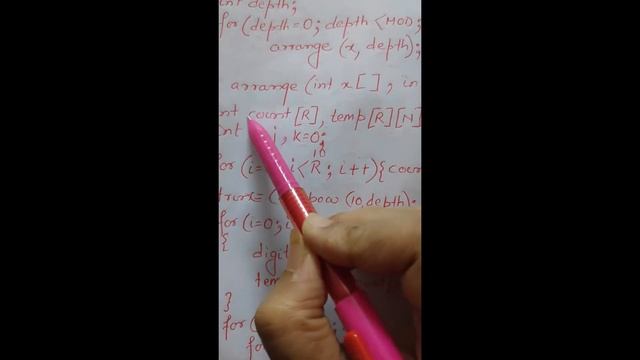 int depth;
for(depth=0; depth<MOD;
arrange (x, depth);
arrange (int x[], in
nt count[R], temp[R][N]
int j, k=0;
10
for (i= i<R; i++){coun
pow (10,depth);
for (i=0; i
{
digit
tem
}
for(
fo